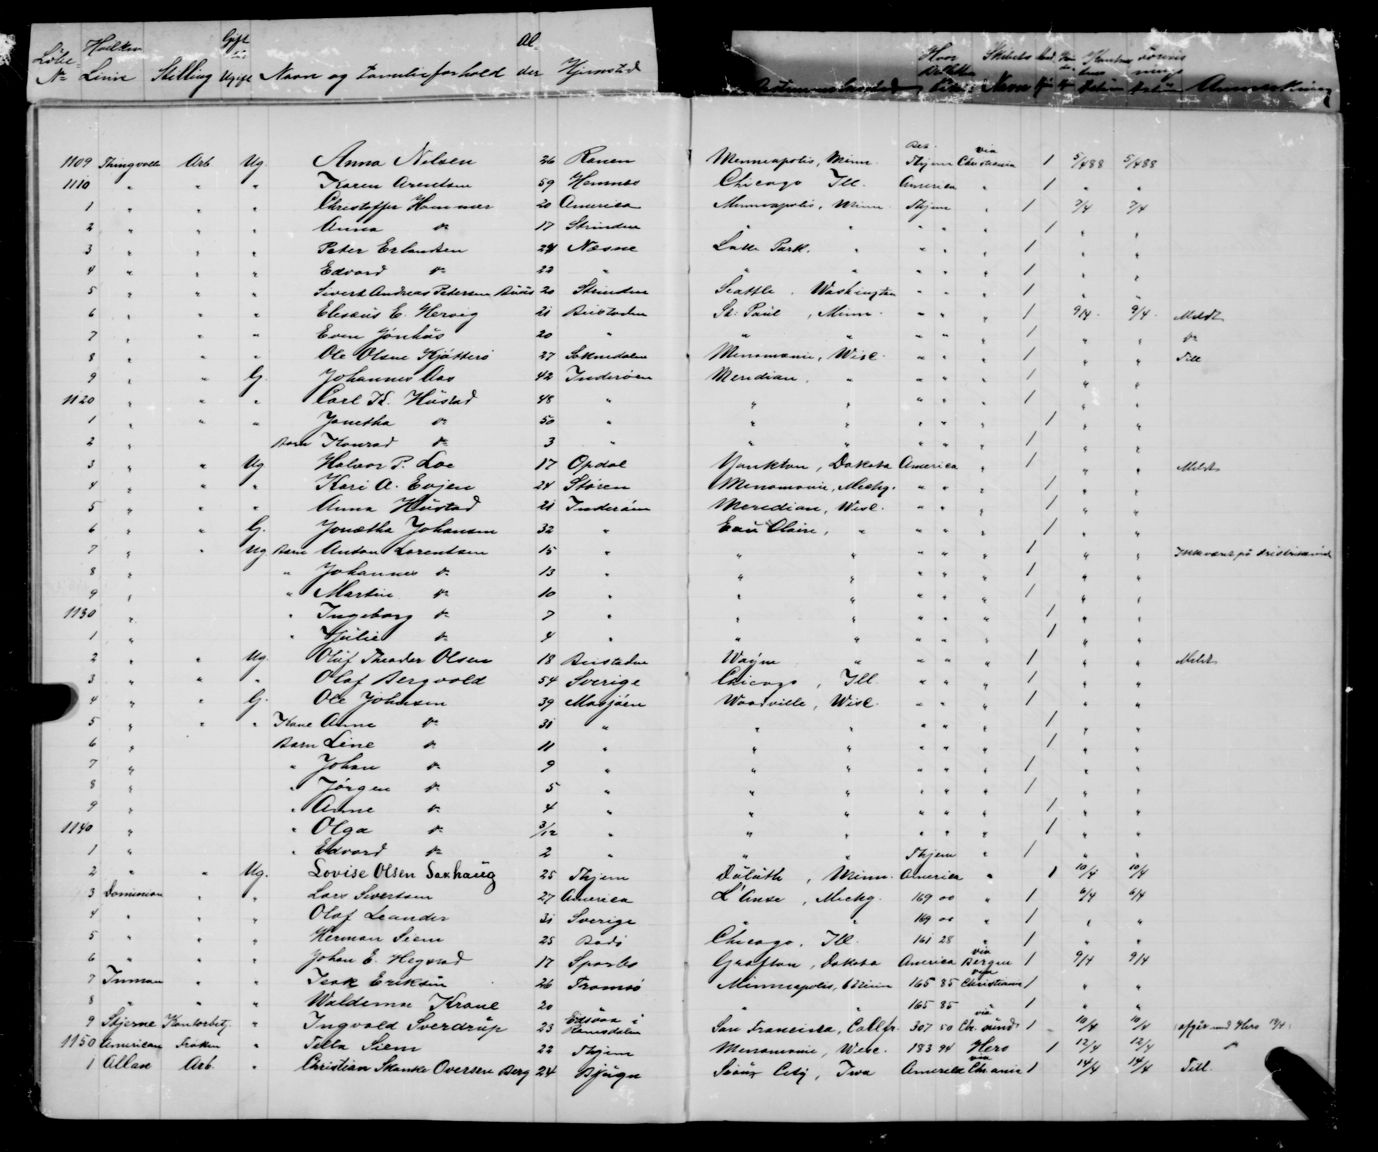 Löbe- Hvilken Gift Al-
No Linie Stilling Ugift Navn og Familieforhold der Hjemsted Hvor Skibets
Bestemmelsessted Navn Anmerkning
1109 Thingvalla Arb Ug. Anna Nilsen 26 Ranen Minneapolis, Minn. Thjem via Christiania 1 5/4 88 5/4 88
1110 " " " Karen Arentsen 59 Hemnes Chicago Ill. America " 1 " "
1 " " " Christoffer Hammer 20 America Minneapolis, Minn Thjem " 1 7/4 7/4
2 " " " Anna do 17 Strinden " " " " " 1 " "
3 " " " Peter Erlandsen 24 Næsne Lake Park. " " " " 1 " "
4 " " " Edvard do 22 " " " " " 1 " "
5 " " " Sivert Andreas Petersen 20 Strinden Seattle. Washington " " " 1 " "
6 " " " Elesæus E. Hervig 21 Beitstaden St. Paul, Minn. " " " 1 9/4. 9/4. Meldt
7 " " " Even Jönhus 20 " " " " " " 1 " " do
8 " " " Ole Olsen 27 Soknedalen Menomonie, Wisc. " " " 1 " " Till
9 " " G. Johannes Aas 42 Inderöen Meridian, " " " " 1 " "
1120 " " " Carl K. Hustad 48 " " " " " " 1 " "
1 " " " Janetha do 50 " " " " " " 1 " "
2 " Barn Konrad do 3 " " " " " " 1 " "
3 " " Ug Halvor P. Loe 17 Opdal Yankton, Dakota America " 1 " " Meldt
4 " " " Kari A. Evjen 24 Støren Menomonie, Michg. " " " 1 " "
5 " " " Anna Hustad 21 Inderöen Meridian, Wisc. " " " 1 " "
6 " " G. Jonetha Johansen 32 " Eau Claire, " " " " 1 " "
7 " " Ug Barn Anton Lorentsen 15 " " " " " " 1 " "
8 " " Johannes do 13 " " " " " " 1 " "
9 " " Martin do 10 " " " " " " 1 " "
1130 " " Ingeborg do 7 " " " " " " 1 " "
1 " " Julie do 4 " " " " " " 1 " "
2 " " Ug. Oluf Theodor Olsen 18 Beitstaden Wayne " " " " 1 " " Meldt
3 " " " Olaf Bergvald 54 Sverige Chicago, Ill " " " 1 " "
4 " " G. Ole Johnsen 39 Mosjöen Woodville, Wisc. " " " 1 " "
5 " " " Kone Anne do 31 " " " " " " 1 " "
6 " Barn Line do 11 " " " " " " 1 " "
7 " " Johan do 9 " " " " " " 1 " "
8 " " Jörgen do 5 " " " " " " 1 " "
9 " " Anne do 4 " " " " " " 1 " "
1140 " " Olga do 3/12 " " " " " " 1 " "
1 " " Edvard do 2 " " " Thjem " 1 " "
2 " " Ug. Lovise Olsen Saxhaug 25 Thjem Duluth, Minn. America " 1 10/4 10/4
3 Dominion " " Lars Sivertsen 27 America L'Anse, Michg. 169 00 " 1 6/4 6/4
4 " " " Olaf Leander 31 Sverige " " 169 00 " 1 " "
5 " " " Herman Siem 25 Bodö Chicago, Ill. 161 28 " 1 " "
6 " " " Johan E. Hegstad 17 Sparbo Grafton, Dakota America via Bergen 1 9/4 9/4
7 Inman " " Isak Eriksen 26 Tromsö Minneapolis, Minn 165 85 via Christiania 1 " "
8 " " " Waldemar Krane 20 " " " 165 85 " 1 " "
9 Stjerne Kontorbetj. " Ingvald Sverdrup 23 Edsvaa i Ramsdalen San Francisco, Calfr. 307 50 via Ch. sund 1 10/4 10/4 afgår med Hero 12/4
1150 American Frøken " Tella Siem 22 Thjem Menomonie, Wisc. 183 94 Hero 1 12/4 12/4 "
1 Allan Arb. " Christian Skanke Oversen Berg 24 Bjugn Sioux City, Iwa America via Ch. ania 1 14/4 14/4 Till